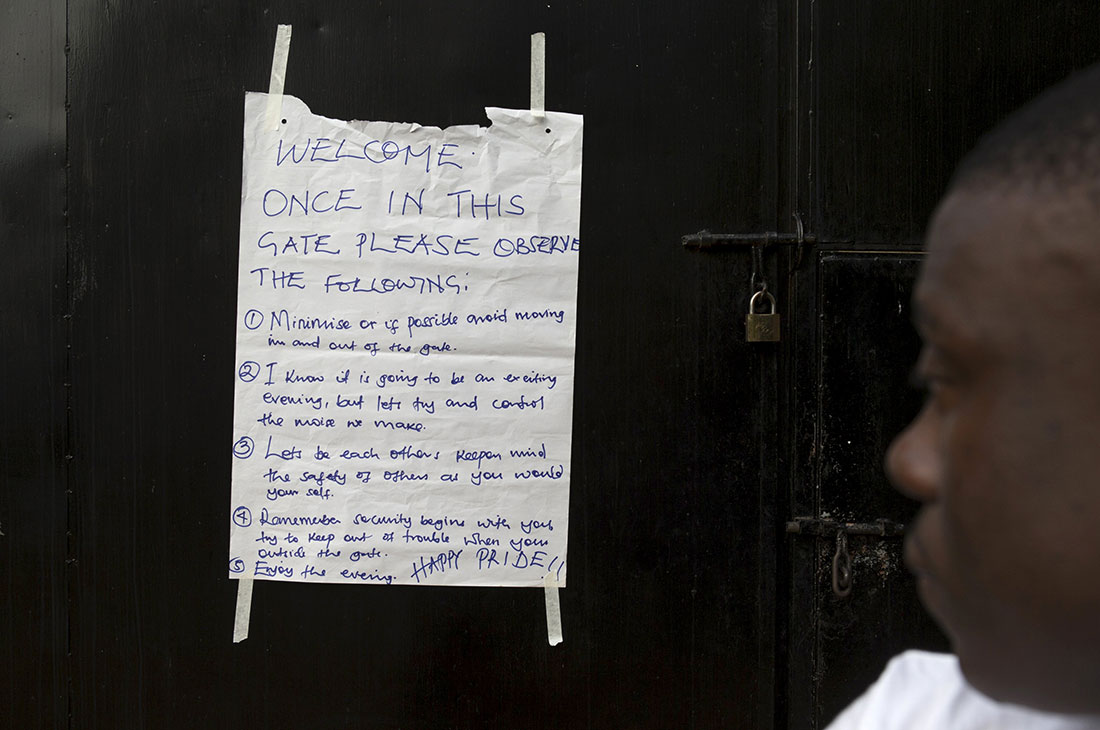 WELCOME.
ONCE IN THIS
GATE PLEASE OBSERVE
THE FOLLOWING:
① Minimise or if possible avoid moving
in and out of the gate.
② I know it is going to be an exciting
evening, but lets try and control
the noise we make.
③ Lets be each others keeper mind
the safety of others as you would
your self.
④ Ramember security begins with you,
try to keep out of trouble when your
outside the gate.
⑤ Enjoy the evening. HAPPY PRIDE!!